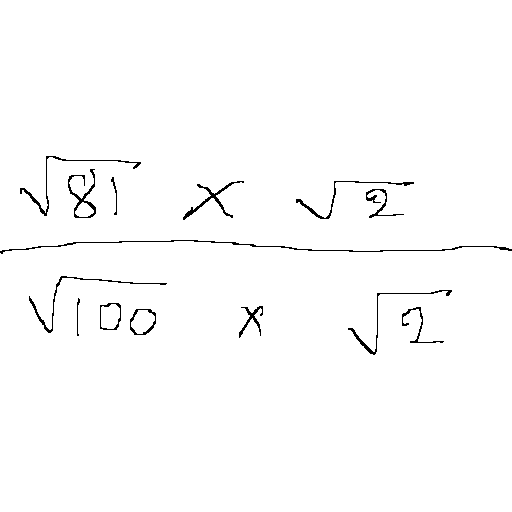 √81 × √2
√100 × √2